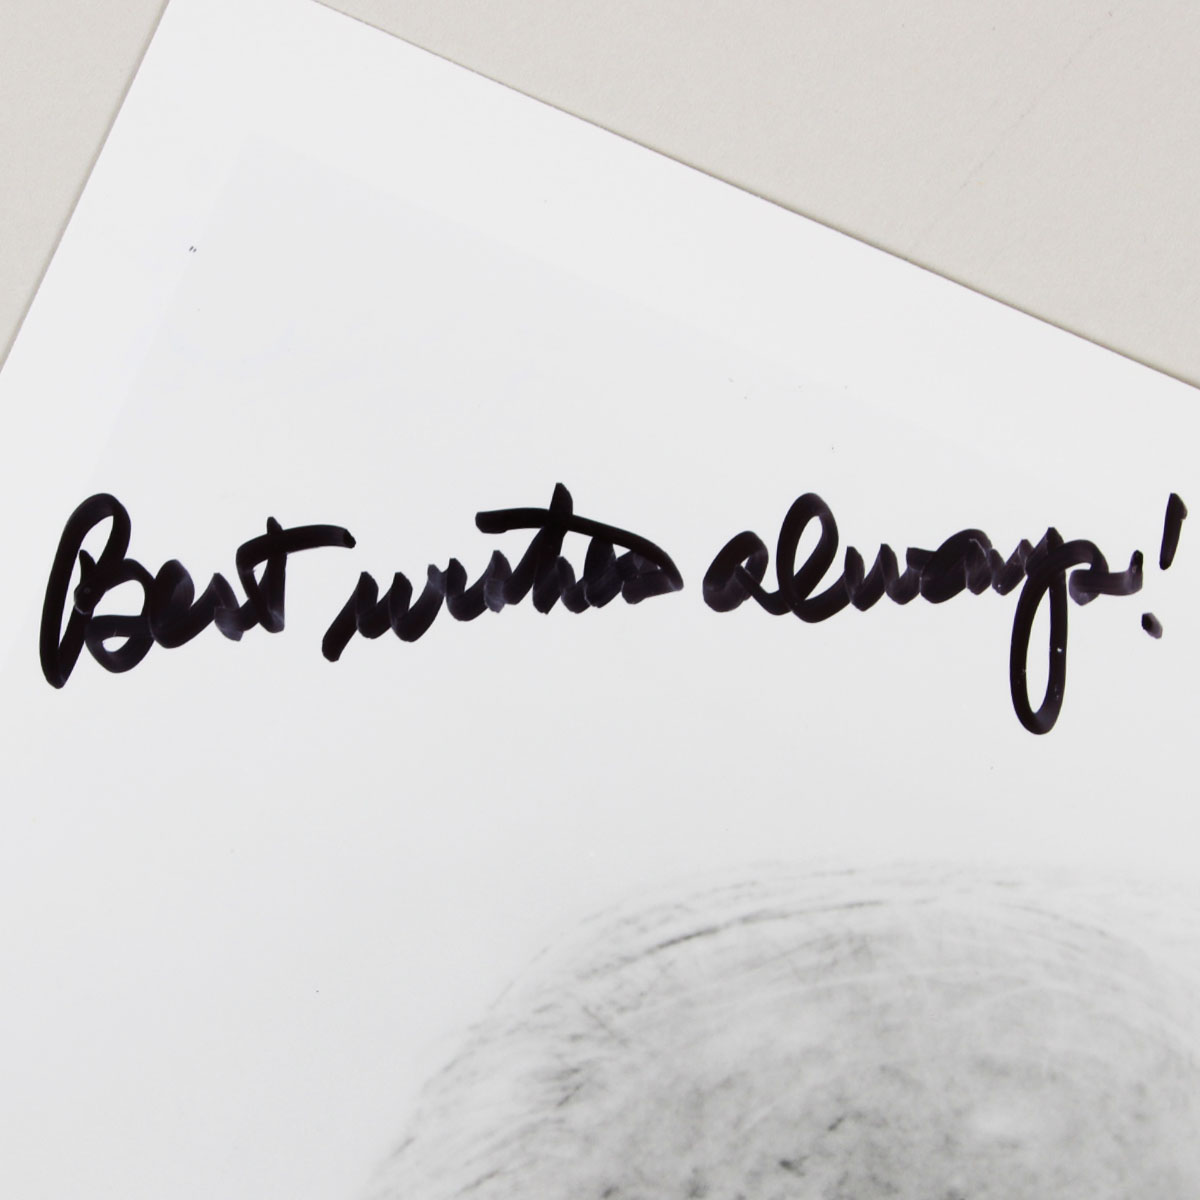 Best wishes always!